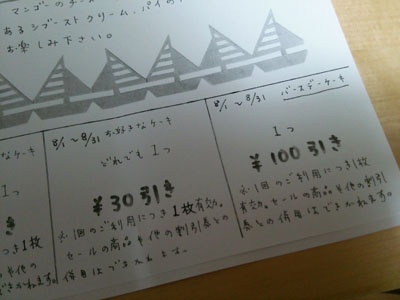 マンゴーのチーム
あるシブースト クリーム、パイの
お楽しみ下さい。
なケーキ
1つ
き
つき1枚
や他の
できかねます。
8/1 〜 8/31 お好きなケーキ
どれでも 1つ
¥30引き
※1回のご利用につき1枚有効。
セールの商品や他の割引券との
併用はできかねます。
8/1 〜 8/31
バースデーケーキ
1つ
¥100引き
※1回のご利用につき1枚
有効。セールの商品や他の割引
券との併用はできかねます。